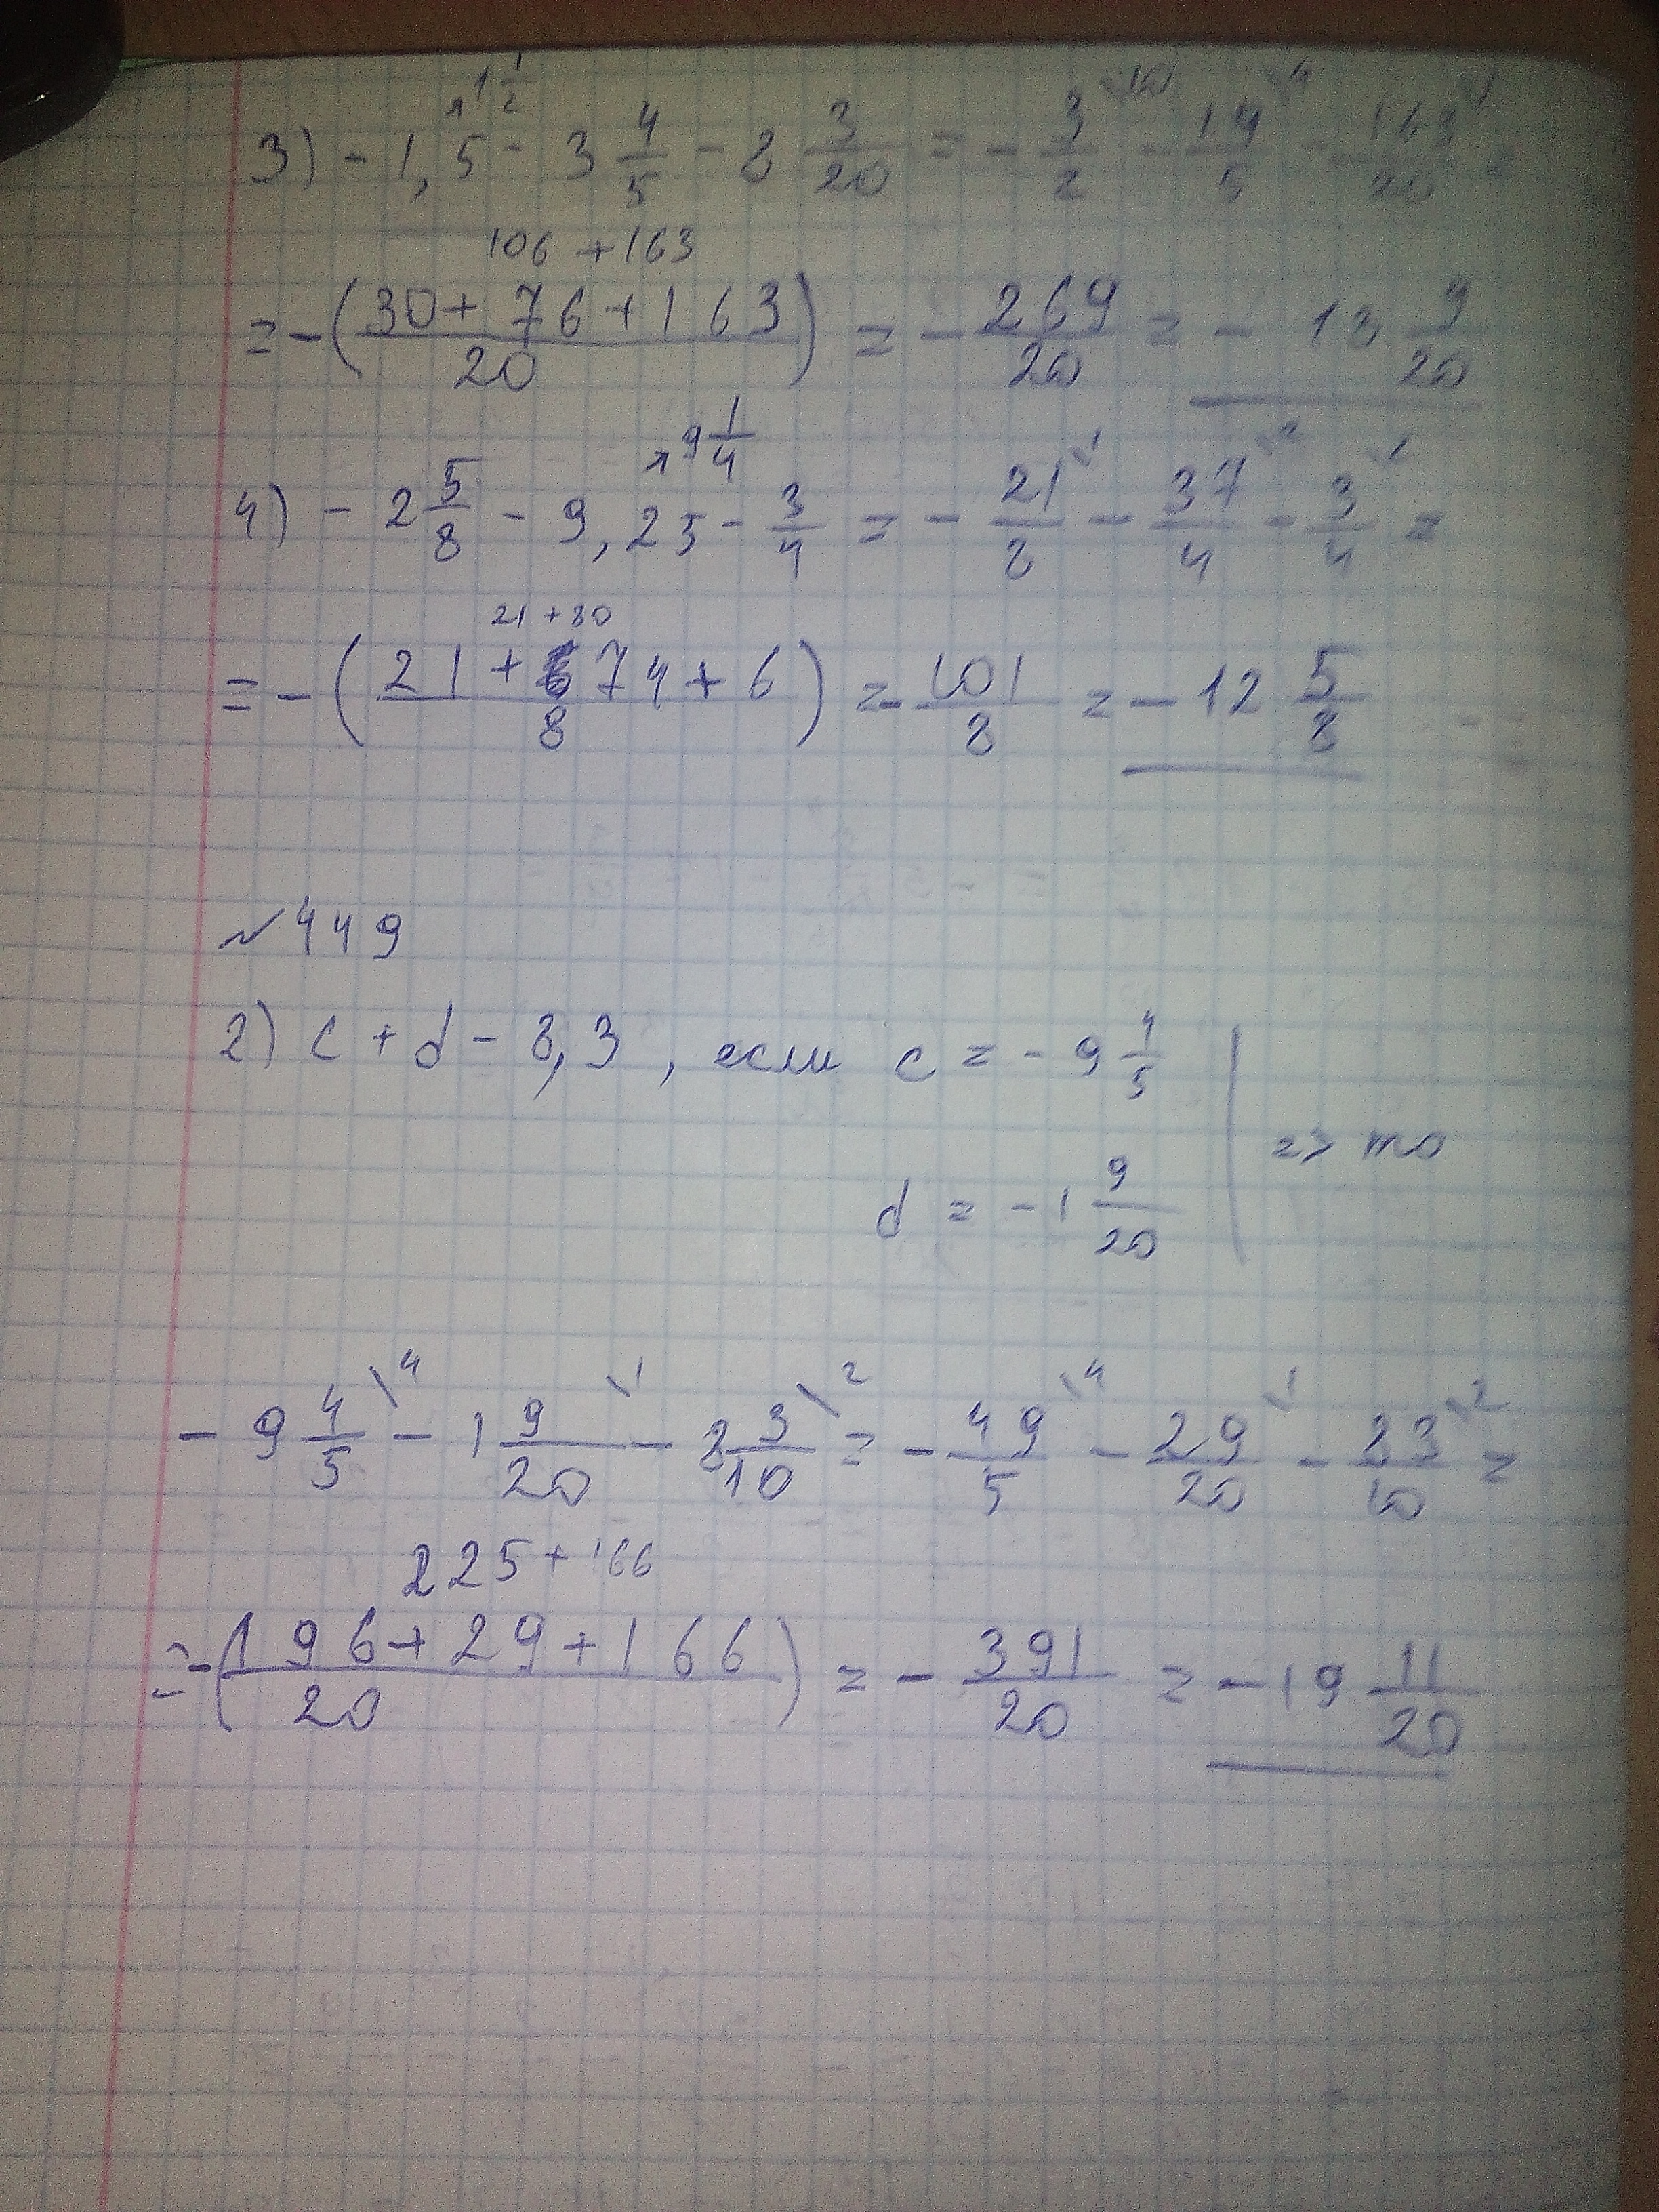 1 1/2
3) - 1,5 - 3 4/5 - 8 3/20 = - 3/2 \10 - 19/5 \4 - 163/20 \1 =
106 + 163
= - ( (30 + 76 + 163)/20 ) = - 269/20 = - 13 9/20
9 1/4
4) - 2 5/8 - 9,25 - 3/4 = - 21/8 \1 - 37/4 \2 - 3/4 \ =
21 + 80
= - ( (21 + 74 + 6)/8 ) = - 101/8 = - 12 5/8
№449
2) c + d - 8,3 , если c = - 9 4/5
=> то
d = - 1 9/20
- 9 4/5 \4 - 1 9/20 \1 - 8 3/10 \2 = - 49/5 \4 - 29/20 \1 - 83/10 \2 =
225 + 166
= - ( (196 + 29 + 166)/20 ) = - 391/20 = - 19 11/20